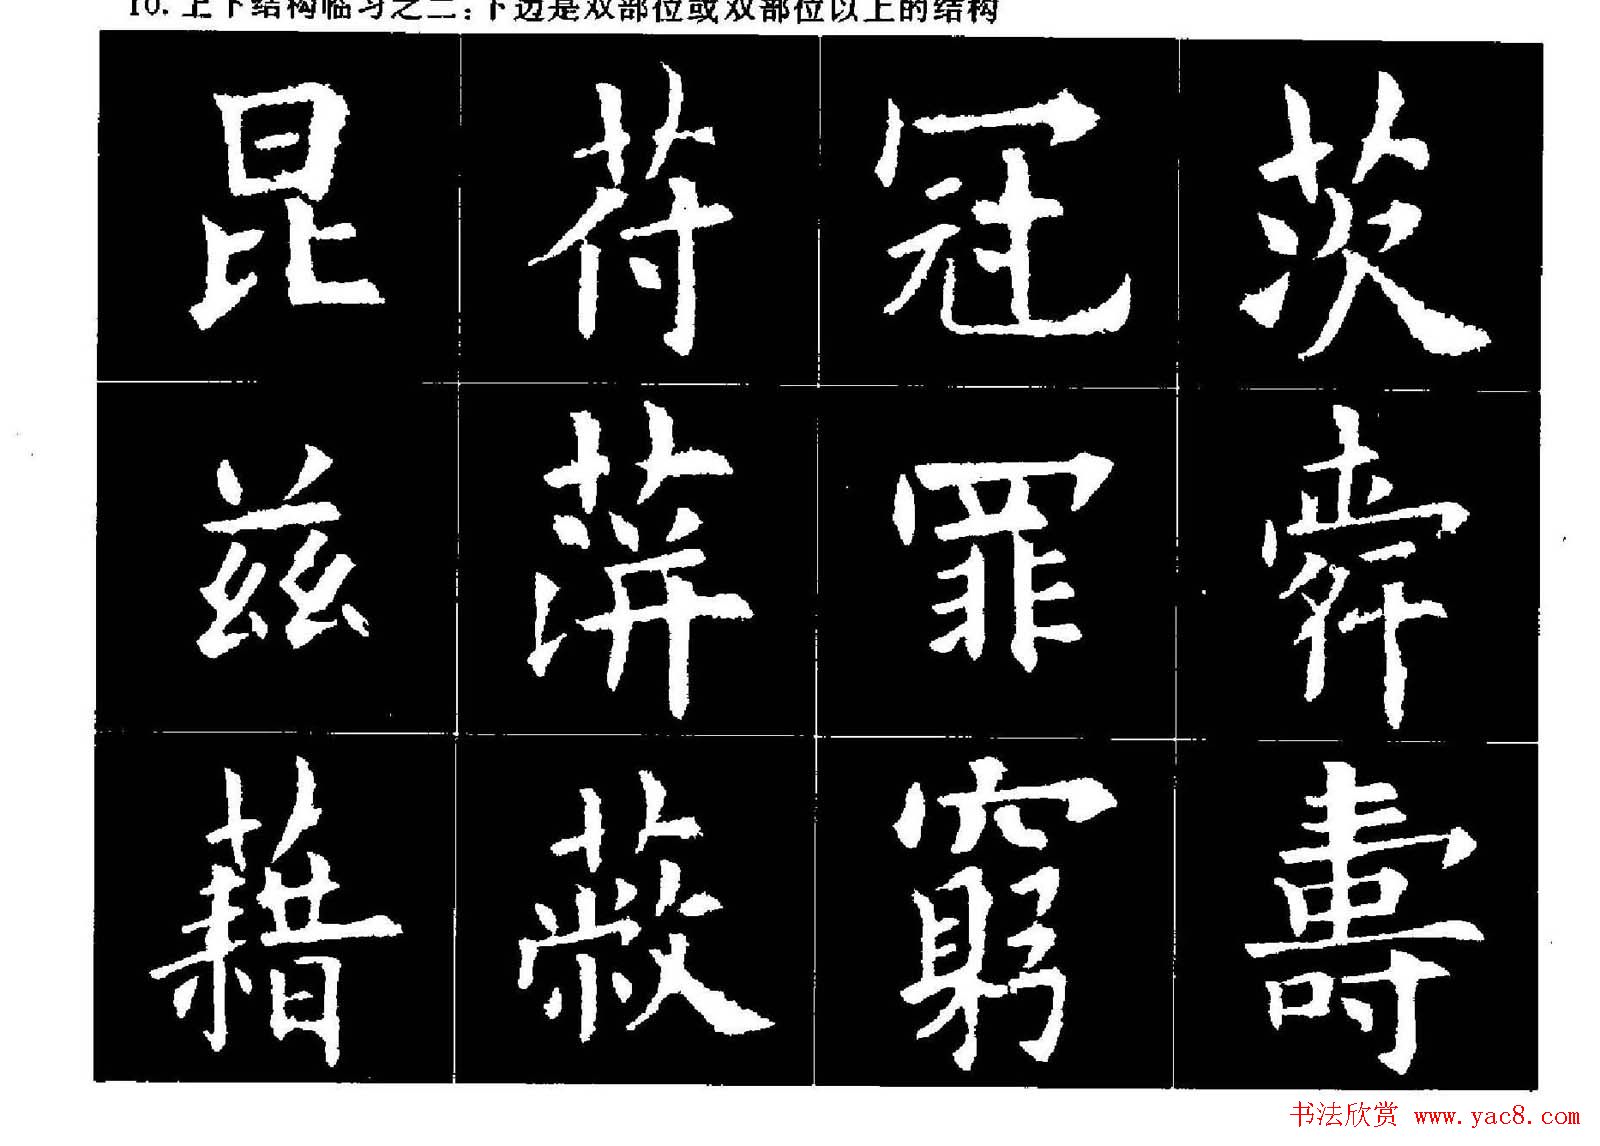 10.上下结构临习之二:下边是双部位或双部位以上的结构
昆 苻 冠 茨
兹 蓱 罪 舜
藉 蔽 窮 壽
书法欣赏 www.yac8.com